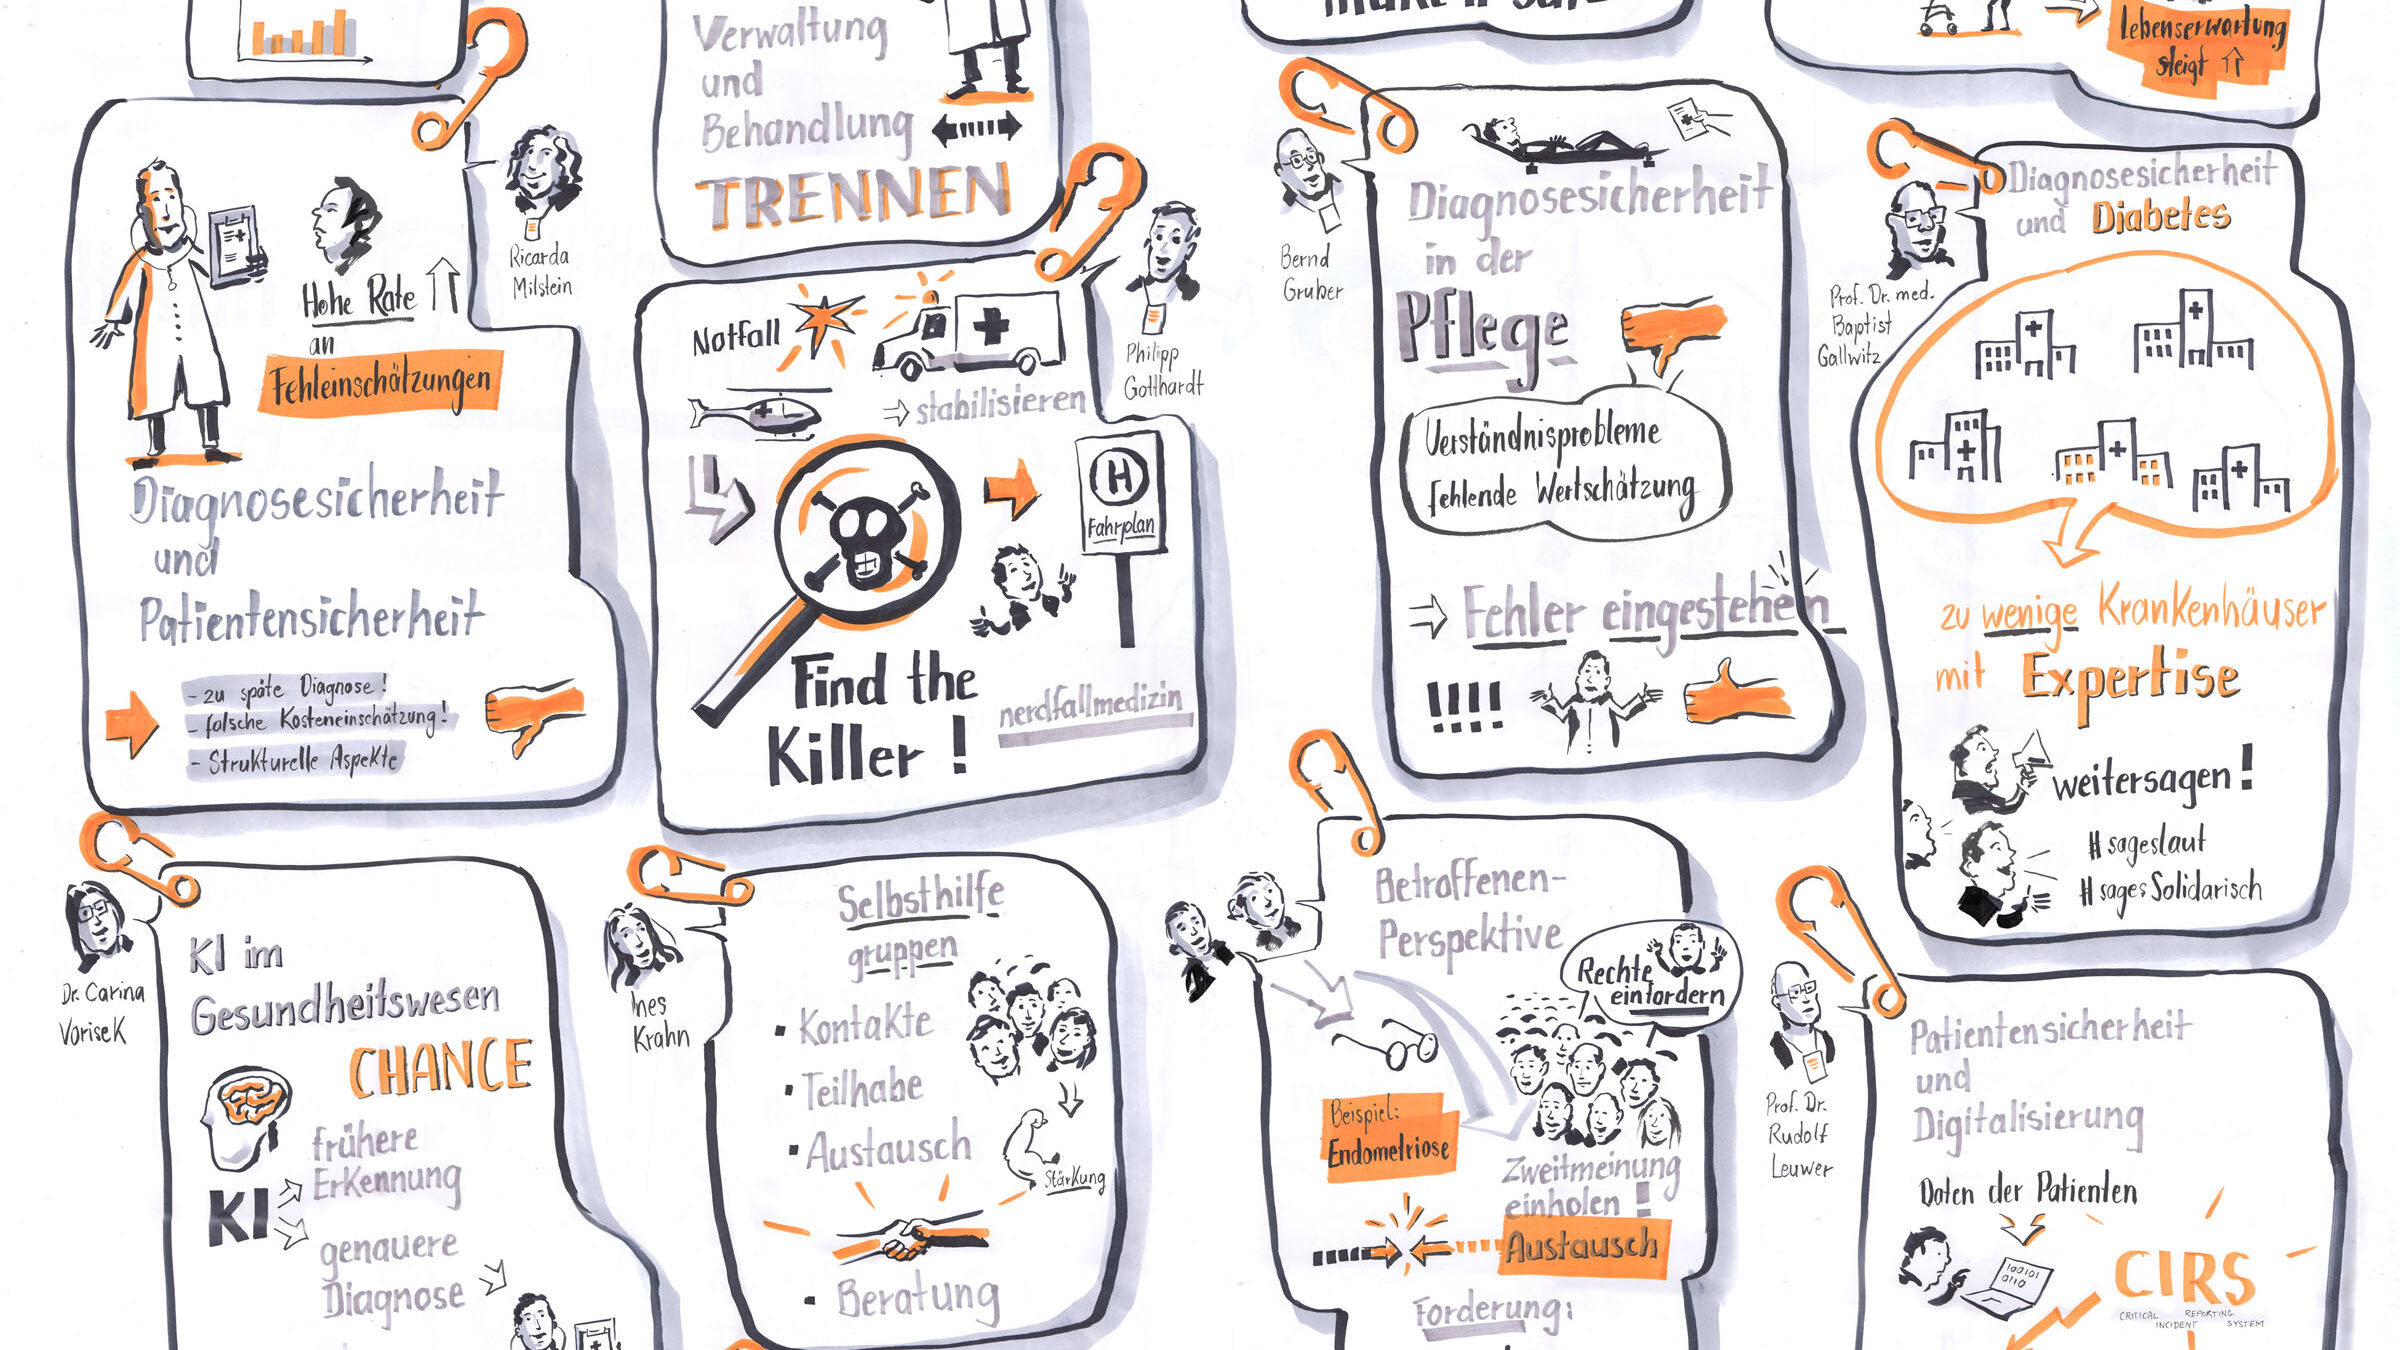 Verwaltung
und
Behandlung
TRENNEN
Lebenserwartung
steigt
Ricarda
Milstein
Hohe Rate
an
Fehleinschätzungen
Diagnosesicherheit
und
Patientensicherheit
- zu späte Diagnose!
- falsche Kosteneinschätzung!
- Strukturelle Aspekte
Philipp
Gotthardt
Notfall
stabilisieren
H
Fahrplan
Find the
Killer!
nerdfallmedizin
Bernd
Gruber
Diagnosesicherheit
in der
Pflege
Verständnisprobleme
fehlende Wertschätzung
Fehler eingestehen
!!!!
Prof. Dr. med.
Baptist
Gallwitz
Diagnosesicherheit
und Diabetes
zu wenige Krankenhäuser
mit Expertise
weitersagen!
#sageslaut
#sagesSolidarisch
Dr. Carina
Vorisek
KI im
Gesundheitswesen
CHANCE
KI
frühere
Erkennung
genauere
Diagnose
Ines
Krahn
Selbsthilfe
gruppen
· Kontakte
· Teilhabe
· Austausch
Stärkung
· Beratung
Betroffenen-
Perspektive
Rechte
einfordern
Beispiel:
Endometriose
Zweitmeinung
einholen!
Austausch
Forderung:
Prof. Dr.
Rudolf
Leuwer
Patientensicherheit
und
Digitalisierung
Daten der Patienten
100101
0110
CIRS
CRITICAL REPORTING
INCIDENT SYSTEM